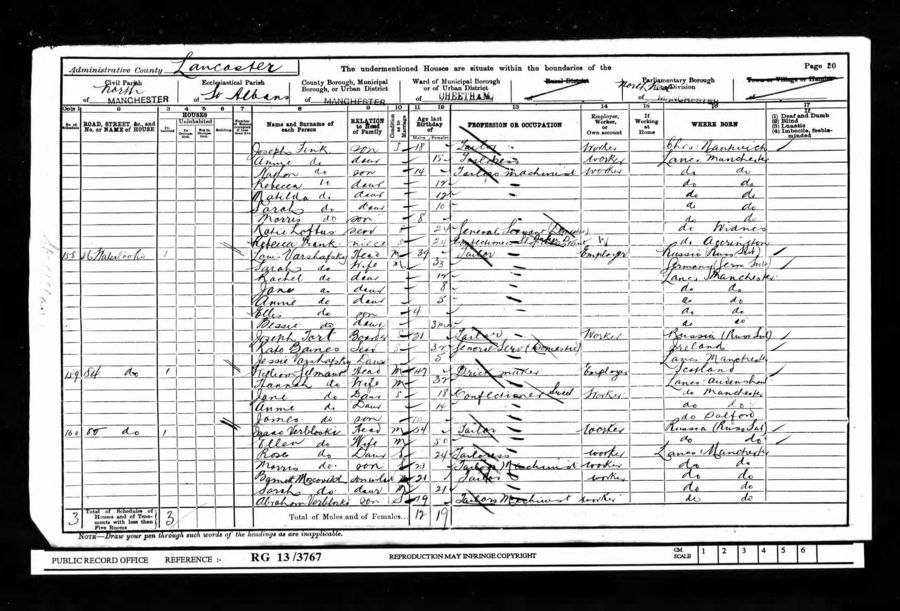 Administrative County Lancaster The undermentioned Houses are situate within the boundaries of the Page 20
Civil Parish Ecclesiastical Parish County Borough, Municipal Borough, or Urban District Ward of Municipal Borough or of Urban District Rural District Parliamentary Borough or Division Town or Village or Hamlet
North
of MANCHESTER of St Albans of MANCHESTER of CHEETHAM of of MANCHESTER of
Cols. 1 2 3 4 5 6 7 8 9 10 11 12 13 14 15 16 17
No. of Schedule ROAD, STREET, &c., and No. or NAME of HOUSE HOUSES Inhabited Uninhabited Name and Surname of each Person RELATION to Head of Family Condition as to Marriage Age last Birthday of PROFESSION OR OCCUPATION Employer, Worker, or Own account If Working at Home WHERE BORN (1) Deaf and Dumb (2) Blind (3) Lunatic (4) Imbecile, feeble-minded
Males Females
Joseph Fink son S 18 Tailor Worker Ches. Nantwich
Annie do daur 15 Tailoress worker Lancs Manchester
Nathan do son 14 Tailors machinist worker do do
Rebecca do daur do do
Matilda do daur 12 do do
Sarah do daur 10 do do
Morris do son 8 do do
Katie Loftus serv 24 General Servant (Domestic) do Widnes
Rebecca Frank niece S 24 W do Accrington
158 1 Varshafsky Head M 39 Tailor Employer Russia (Russ Sub)
Sarah do Wife M 33 Germany
Rachel do daur Lancs Manchester
Jane do daur 8 do do
Annie do daur 5 do do
Ellis do son 4 do do
Bessie do daur 3 mos do do
Joseph Tort Boarder S 21 Tailor Worker Russia (Russ Sub)
Kate Baines Serv S 32 General Serv (Domestic) Ireland
Jessie Varshafsky Daur 5 Lancs Manchester
159 84 do 1 William Head M 47 Brick maker Employer Scotland
Hannah do Wife M Lancs. Audenshaw
Jane do Daur S 18 Confectioner Worker do Manchester
Annie do Daur 14 do do
James do son do Salford
160 do 1 Isaac Verbloski Head M 54 Tailor worker Russia (Russ Sub)
Ellen do Wife M 50 do do
Rose do Daur S 24 Tailoress worker Lancs Manchester
Morris do son 23 Tailors Machinist worker do do
Moscovitch son in law M 21 Tailor worker do do
Sarah do daur M 21 do do
Abraham Verbloski son S 19 Tailors Machinist worker do do
3 Total of Schedules of Houses and of Tenements with less than Five Rooms 3 Total of Males and Females... 12 19
NOTE—Draw your pen through such words of the headings as are inapplicable.
PUBLIC RECORD OFFICE REFERENCE :- RG 13/3767 REPRODUCTION MAY INFRINGE COPYRIGHT CM SCALE 1 2 3 4 5 6